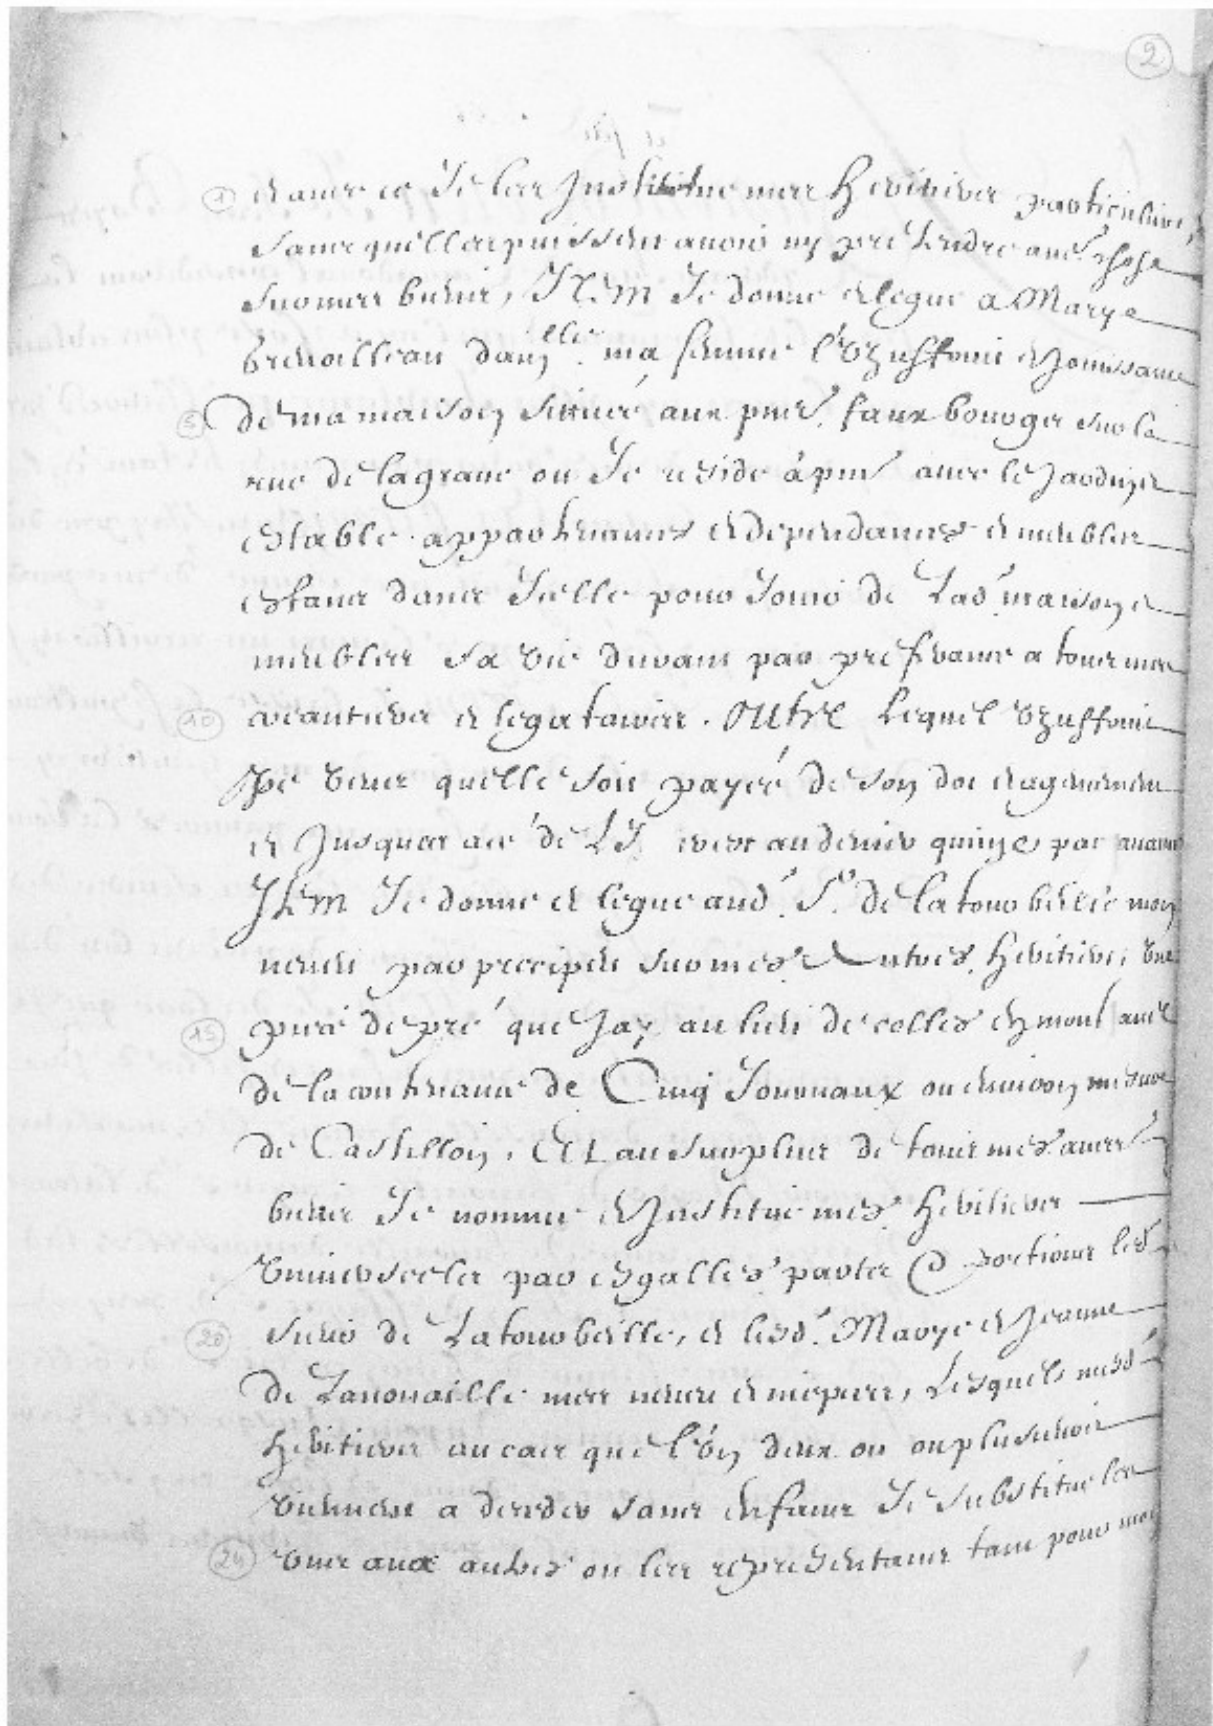 2
1 et avec ce Je les Institue mes heritieres particulieres,
sans quelles puissent avoir ny pretendre autre chose
sur mes biens, Item Je donne et legue a Marye
breuoilleau damlle. ma femme l'Vzuffruit et Jouissance
5 de ma maison sittuée aux pnts. faux bourgs sur la
rue de lagraue ou Je reside à pnt avec le Jardin et
estable. appartenances et dependances et meubles
estans dans Icelle pour Jouir de Lad. maison et
meubles sa vie durant par preferance a tous mes
10 creantiers et legataires. outre Lequel Vzuffruit
Je veux quelle soit payée de son dot et agencement
et Jusques a ce de L'I. rest au denier quinze par avance
Item Je donne et legue aud. Sr. de Latour beille mon
neveu par preciput sur mes autres heritiers, une
15 piece de pré que Jay au lieu de colles en mont
de la contenance de Cinq Journaux ou environ mesure
de Castillon, Et au surplus de tous mes autres
biens Je nomme et Institue mes heritiers
Universels par esgalles partes & portions led.
20 sieur de Latourbeille, et lesd. Marye et Jeanne
de Lanouaille mes neveu et niepces, Lesquels mesd.
heritiers au cas que l'Vn deux ou ou plusieurs
viennent a deceder sans enfans Je substitue les
24 uns aux autres ou les representans tant pour moy